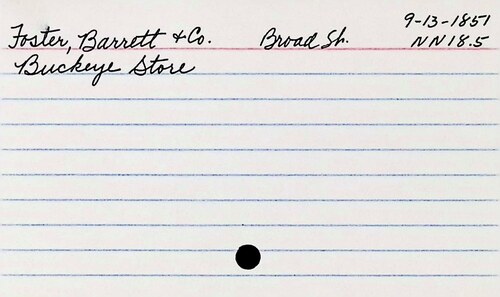 9-13-1851
Foster, Barrett & Co. Broad St. NN18.5
Buckeye Store